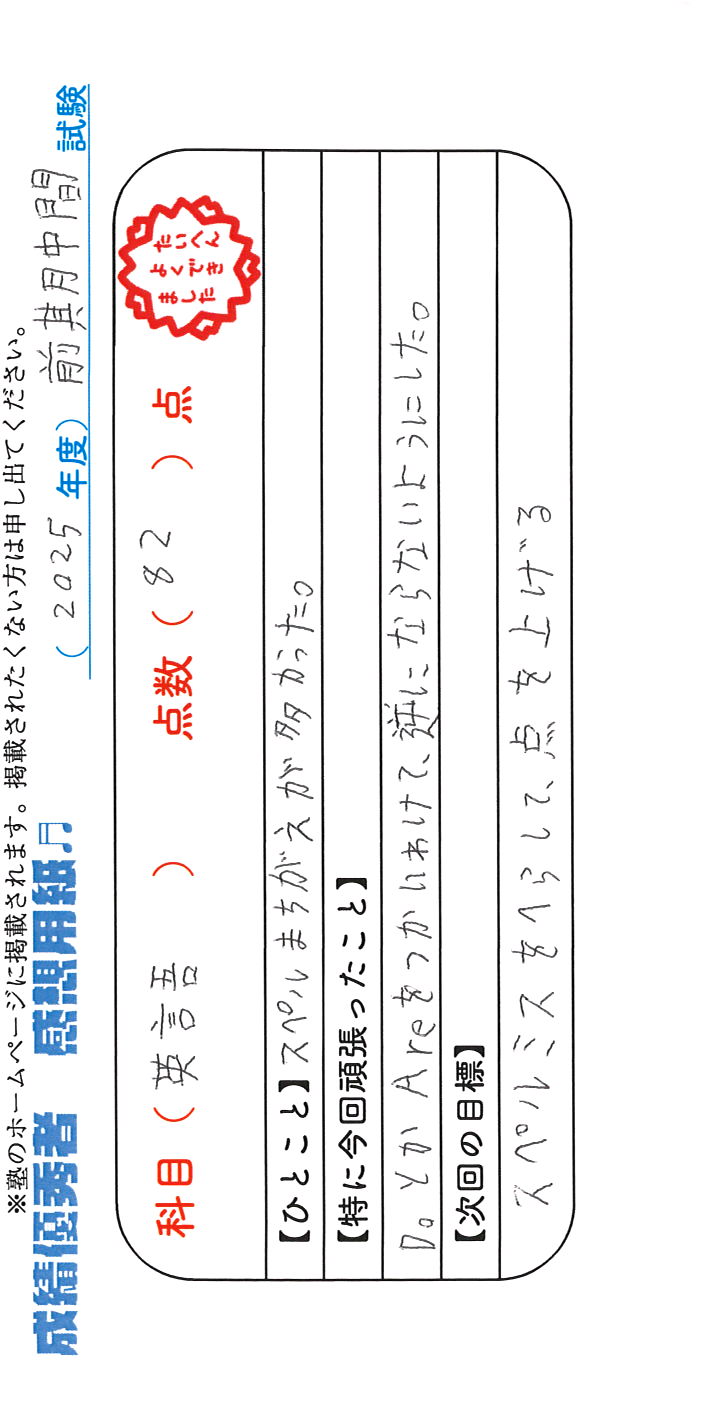 ※塾のホームページに掲載されます。掲載されたくない方は申し出てください。
成績優秀者 感想用紙♫ (2025年度)前期中間試験
科目(英語) 点数(82)点
たいへん
よくでき
ました
【ひとこと】スペルまちがえが多かった。
【特に今回頑張ったこと】
DoとかAreをつかいわけて、逆にならないようにした。
【次回の目標】
スペルミスをへらして、点を上げる